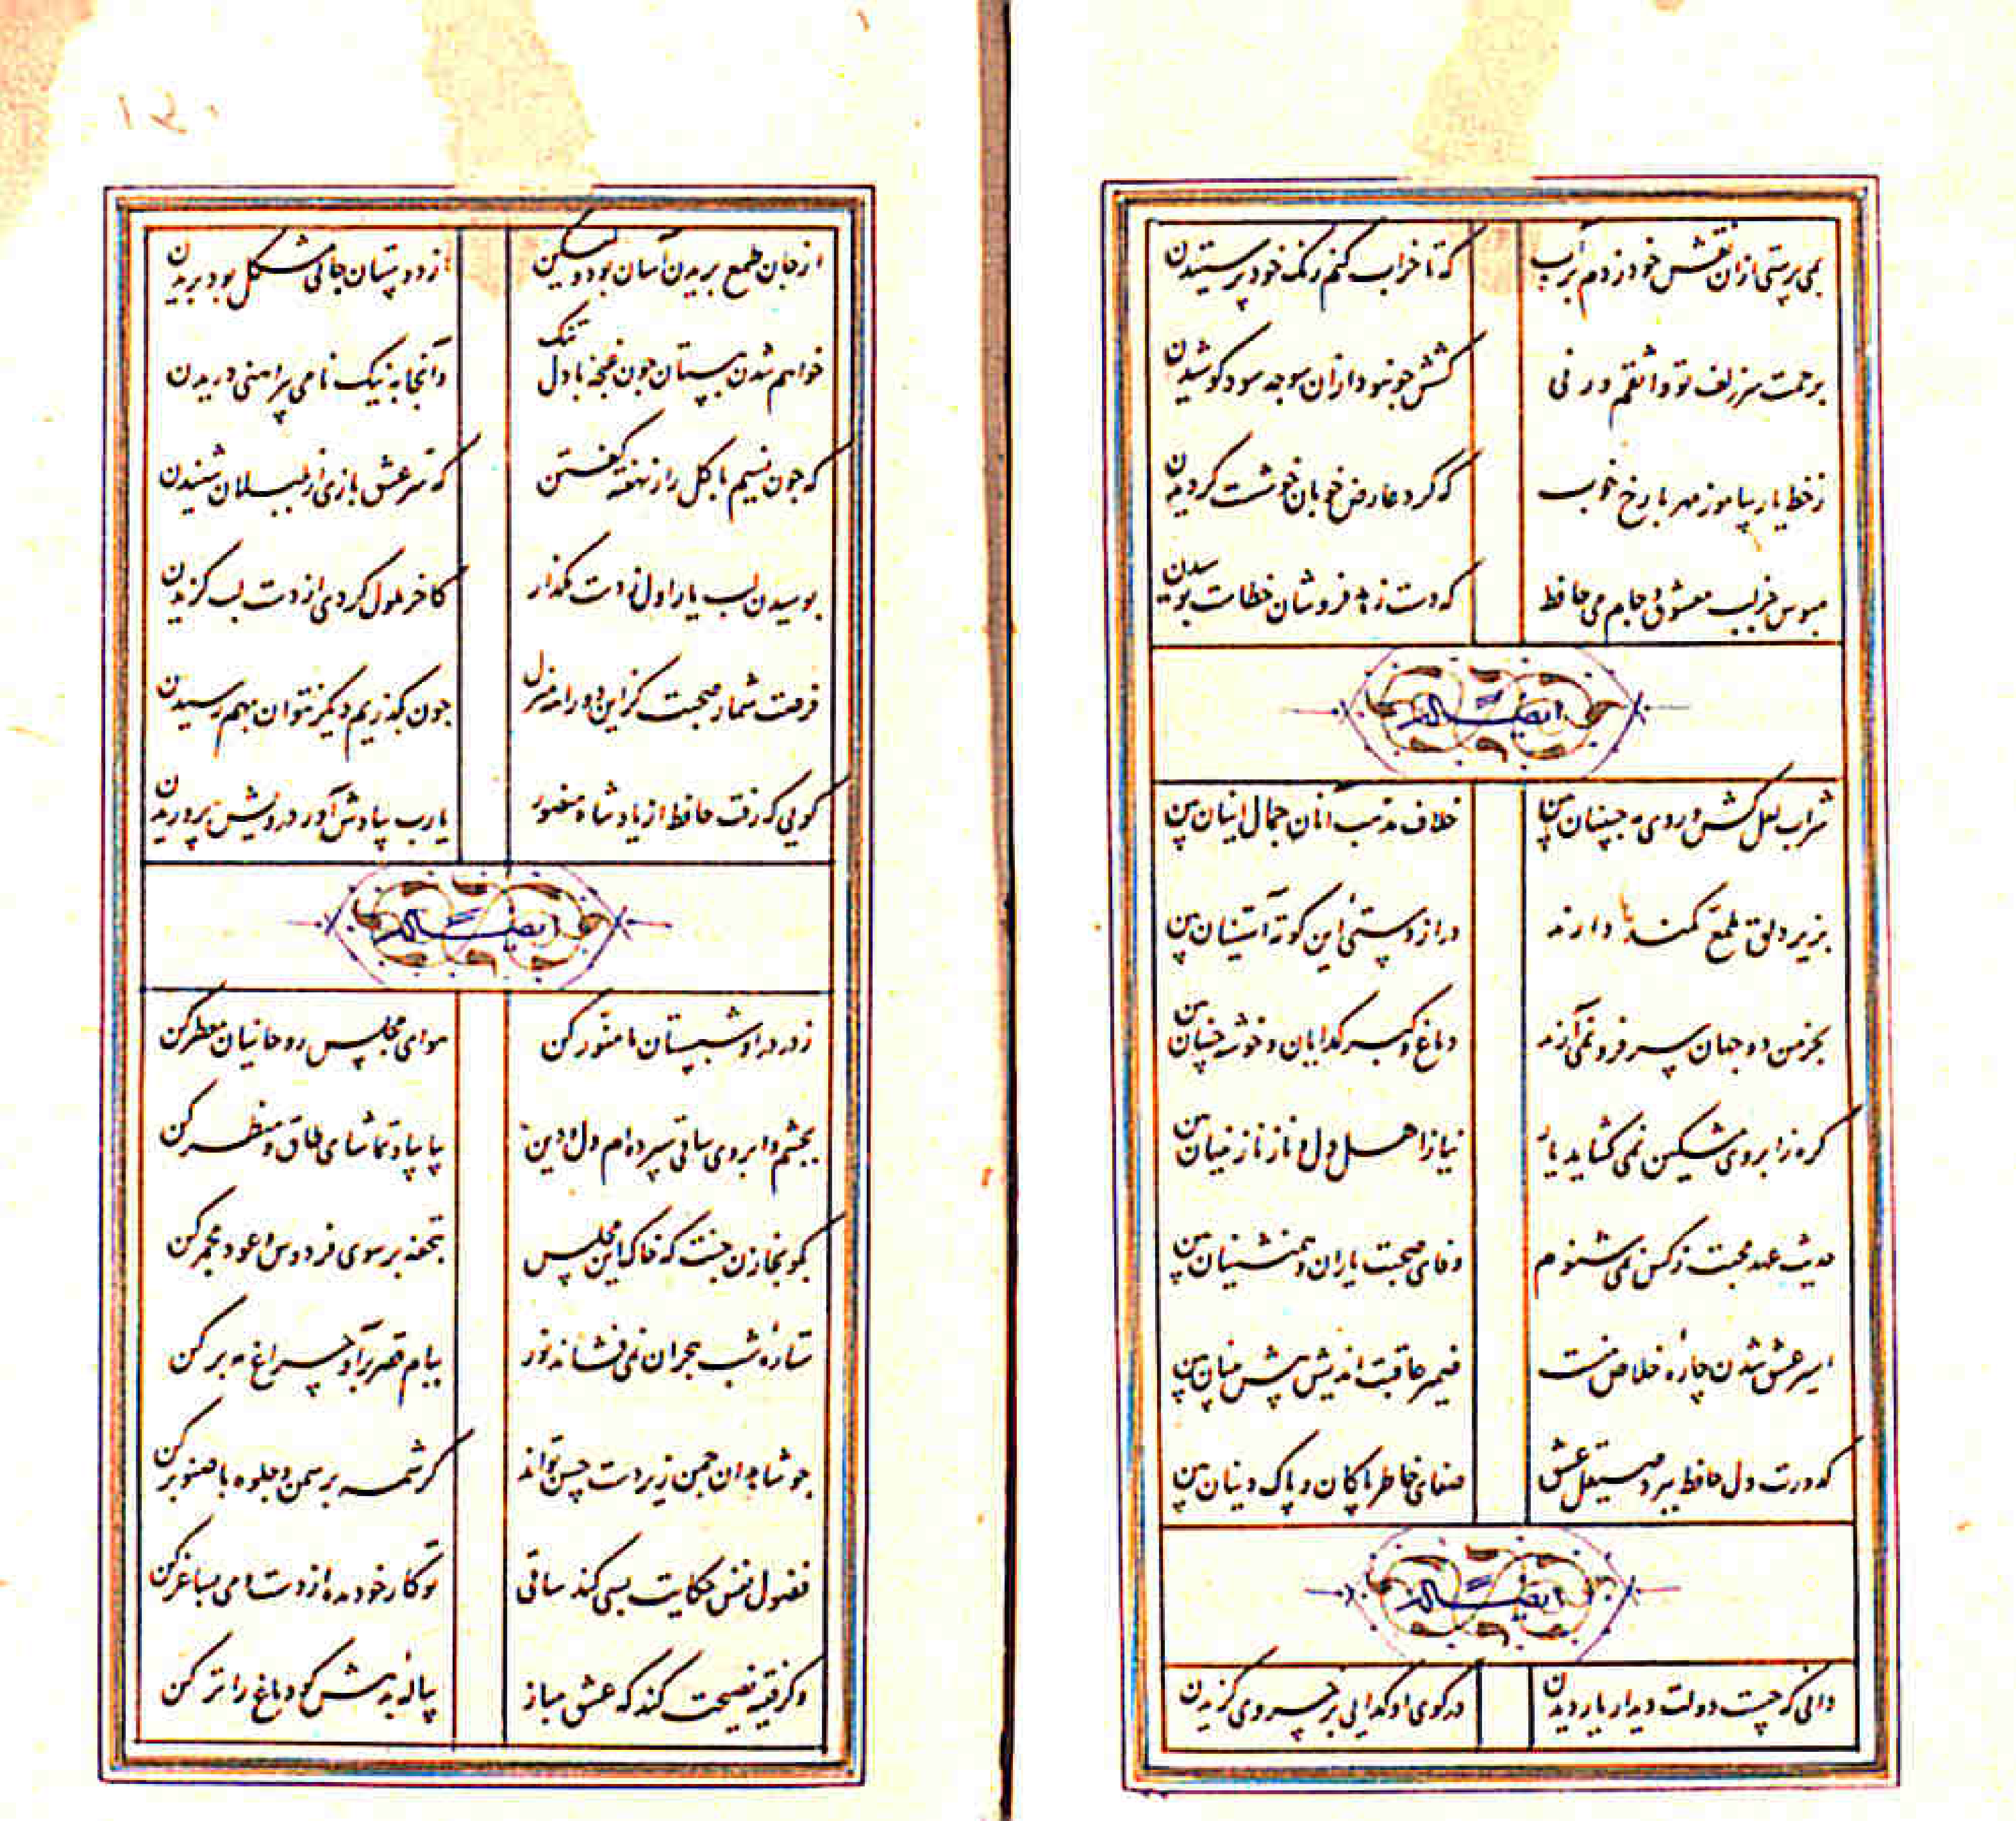 بمی پرستی ازان نقش خود زدم بر آب که تا خراب کنم رنک خود پرستیدن
برحمت سر زلف تو واثقم ورنی کشش جو نبود ازان سو جه سود کوشیدن
ز خط یار بیاموز مهر با رخ خوب که کرد عارض خوبان خوشست کردیدن
مبوس جز لب معشوق و جام می حافظ که دست زهد فروشان خطاست بوسیدن
ایضا له
شراب لعل کش و روی مه جبینان بین خلاف مذهب آنان جمال اینان بین
بزیر دلق ملمع کمندها دارند دراز دستی این کوته آستینان بین
بخرمن دو جهان سر فرو نمی آرند دماغ و کبر کدایان و خوشه چینان بین
کره ز ابروی مشکین نمی کشاید یار نیاز اهل دل و ناز نازنینان بین
حدیث عهد محبت ز کس نمی شنوم وفای صحبت یاران و همنشینان بین
اسیر عشق شدن چاره خلاص منست ضمیر عاقبت اندیش پیش بینان بین
کدورت دل حافظ ببرد صیقل عشق صفای خاطر پاکان و پاک دینان بین
ایضا له
دانی که چیست دولت دیدار یار دیدن در کوی او کدایی بر خسروی کزیدن
از جان طمع بریدن آسان بود ولیکن از دوستان جانی مشکل بود بریدن
خواهم شدن ببستان جون غنجه با دل تنک وآنجا به نیک نامی پیراهنی دریدن
که جون نسیم با کل راز نهفته کفتن که سر عشق بازی از بلبلان شنیدن
بوسیدن لب یار اول ز دست مکذار کاخر ملول کردی از دست لب کزیدن
فرصت شمار صحبت کز این دو راهه منزل جون بکذریم دیکر نتوان بهم رسیدن
کویی که رفت حافظ از یاد شاه منصور یارب بیادش آور درویش پروریدن
ایضا له
ز در درا و شبستان ما منور کن هوای مجلس روحانیان معطر کن
بجشم و ابروی ساقی سپرده ام دل و دین بیا بیا و تماشای طاق و منظر کن
بکو بخازن جنت که خاک این مجلس بتحفه بر سوی فردوس و عود مجمر کن
ستاره شب هجران نمی فشاند نور ببام قصر برآ و چراغ مه بر کن
جو شاهدان جمن زیر دست حسن تواند کرشمه بر سمن و جلوه با صنوبر کن
فضول نفس حکایت بسی کند ساقی تو کار خود مده از دست و می بساغر کن
وکر فقیه نصیحت کند که عشق مباز پیاله بدهش کو دماغ را تر کن